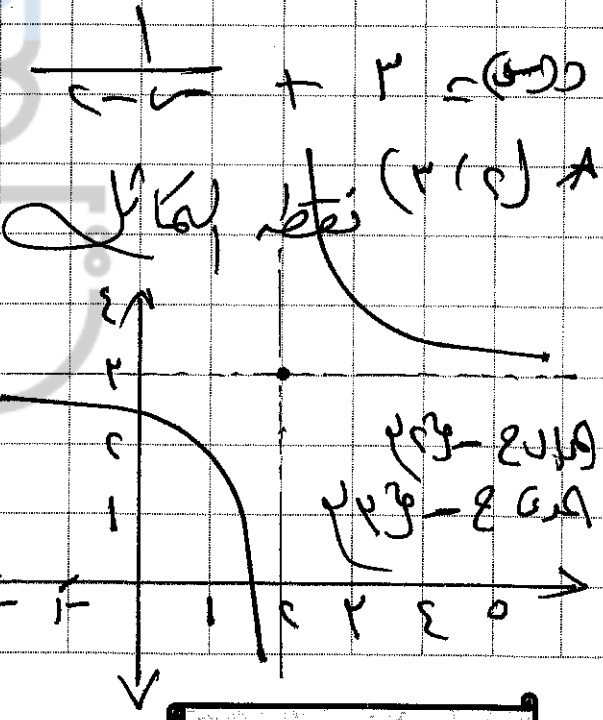 د(س) = ٣ + ١/(س - ٢)
(٢ ، ٣) نقطة التماثل
المجال ح - {٢}
المدى ح - {٣}
٤
٣
٢
١
-١ ١ ٢ ٣ ٤ ٥